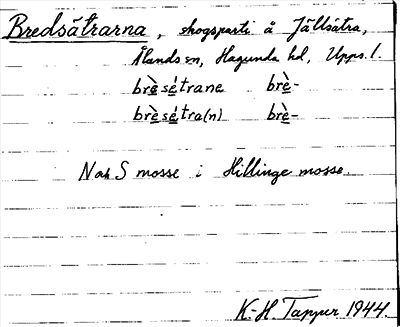 Bredsätrarna, skogsparti å Jällsätra,
Ålands sn, Hagunda hd, Upps. l.
brè̱sé̱trane brè̱-
brè̱sé̱tra(n) brè̱-
N och S mosse i Hillinge mosse.
K.-H. Tapper 1944.